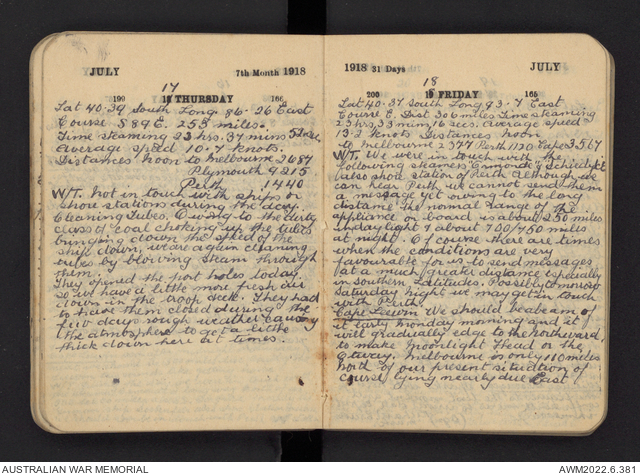 JULY 7th Month 1918
17
199 18 THURSDAY 166
Lat 40·39 South Long 86·26 East
Course S 89 E. 253 miles.
Time steaming 23 hrs. 37 mins 51 sec.
average speed 10·7 knots.
Distances noon to Melbourne 2687
Plymouth 9215
Perth 1440
W/T. Not in touch with ships or
shore stations during the day
Cleaning Tubes. Owing to the dirty
class of coal choking up the tubes
bringing down the speed of the
ship down, we are again cleaning
tubes by blowing steam through
them.
They opened the port holes today.
so we have a little more fresh air
down in the poop deck. They had
to have them closed during the
few days rough weather causing
the atmosphere to get a little
thick down here at times.
1918 31 Days JULY
18
200 19 FRIDAY 165
Lat 40·37 South Long 93·7 East
Course E. Dist 306 miles Time steaming
23 hrs, 33 min, 16 secs average speed
13·2 knots Distances noon
to Melbourne 2377 Perth 1120 Cape 3567
W/T. We were in touch with the
following steamers "Ennoric" &
also shore station of Perth although we
can hear Perth we cannot send them
a message yet owing to the long
distance. The nomical range of the
appliance on board is about 250 miles
in daylight & about 700/750 miles
at night. Of course there are times
when the conditions are very
favourable for us to send messages
at a much greater distance especially
in southern Latitudes. Possibly tomorrow
saturday night we may get in touch
with Perth.
Cape Leewin We should be abeam of
it early Monday morning and it
will gradually edge to the Northward
to make Moonlight Head or the
Otway. Melbourne is only 110 miles
North of our present situation of
course lying nearly due East
AUSTRALIAN WAR MEMORIAL
AWM2022.6.381